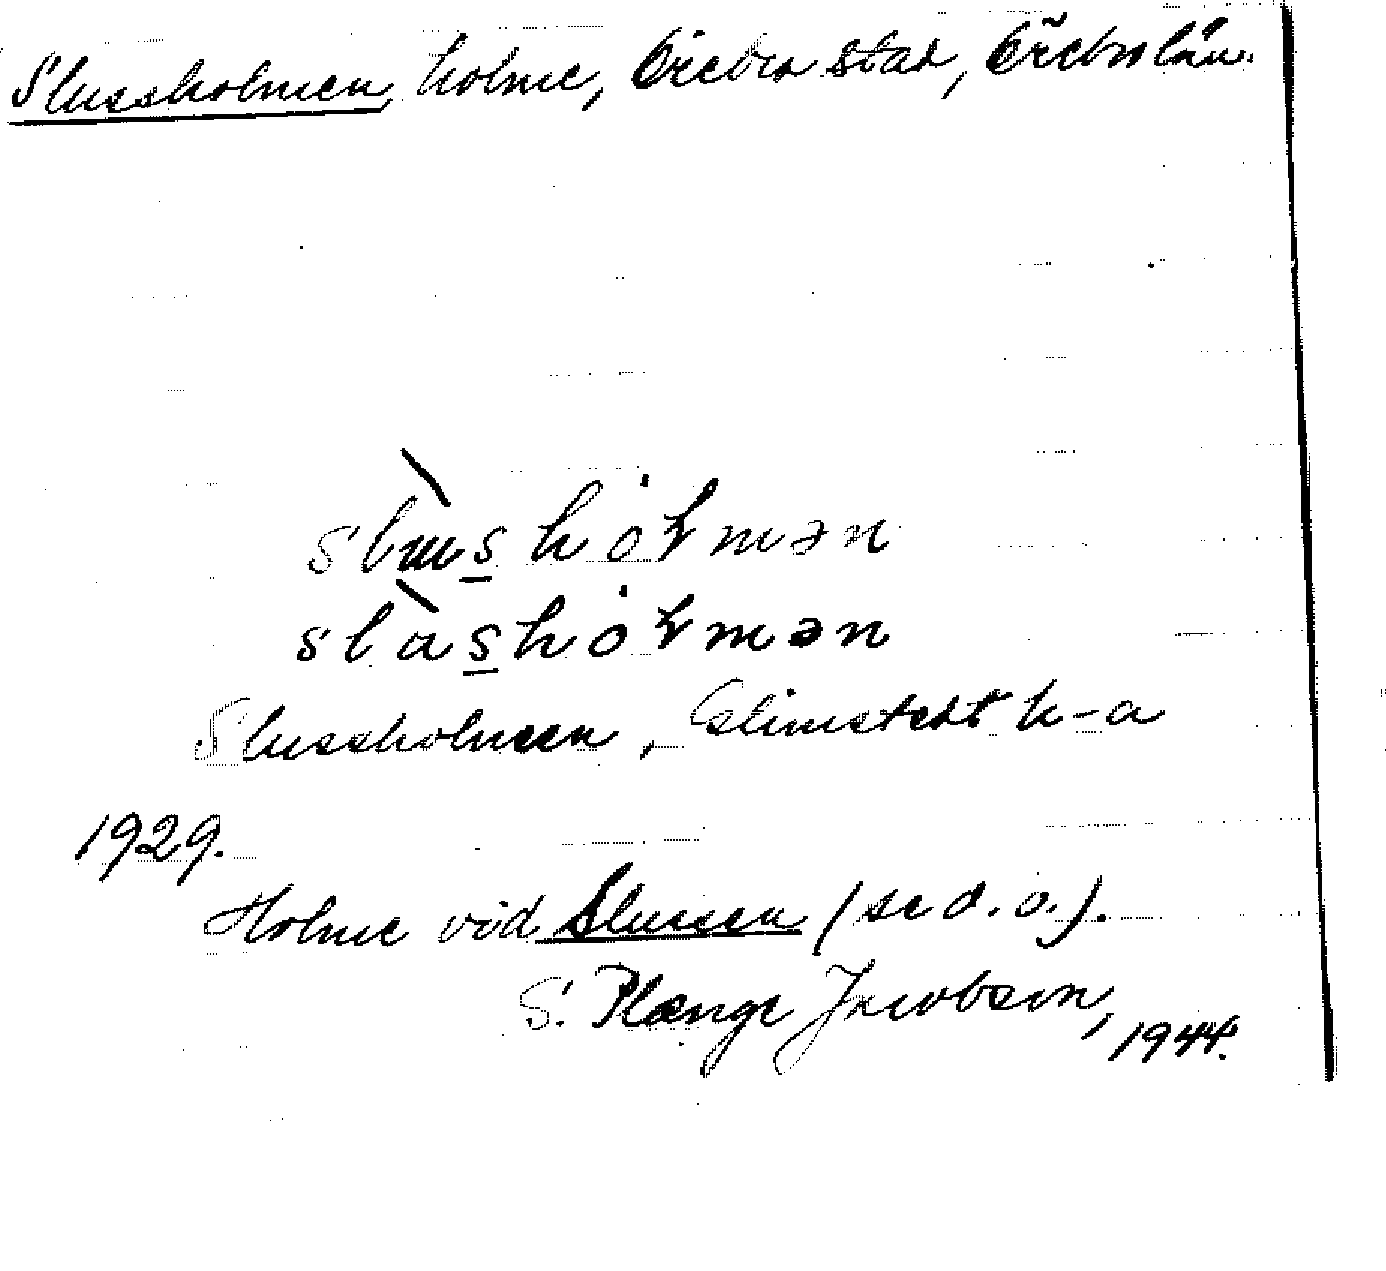 Slussholmen, holme, Örebro stad, Örebro län.
slɯ̀s̱hȯłmən
slàs̱hȯłmən
Slussholmen, Elimstedt k-a
1929.
Holme vid Slussen (se d. o.).
S. Plænge Jacobson,
1944.